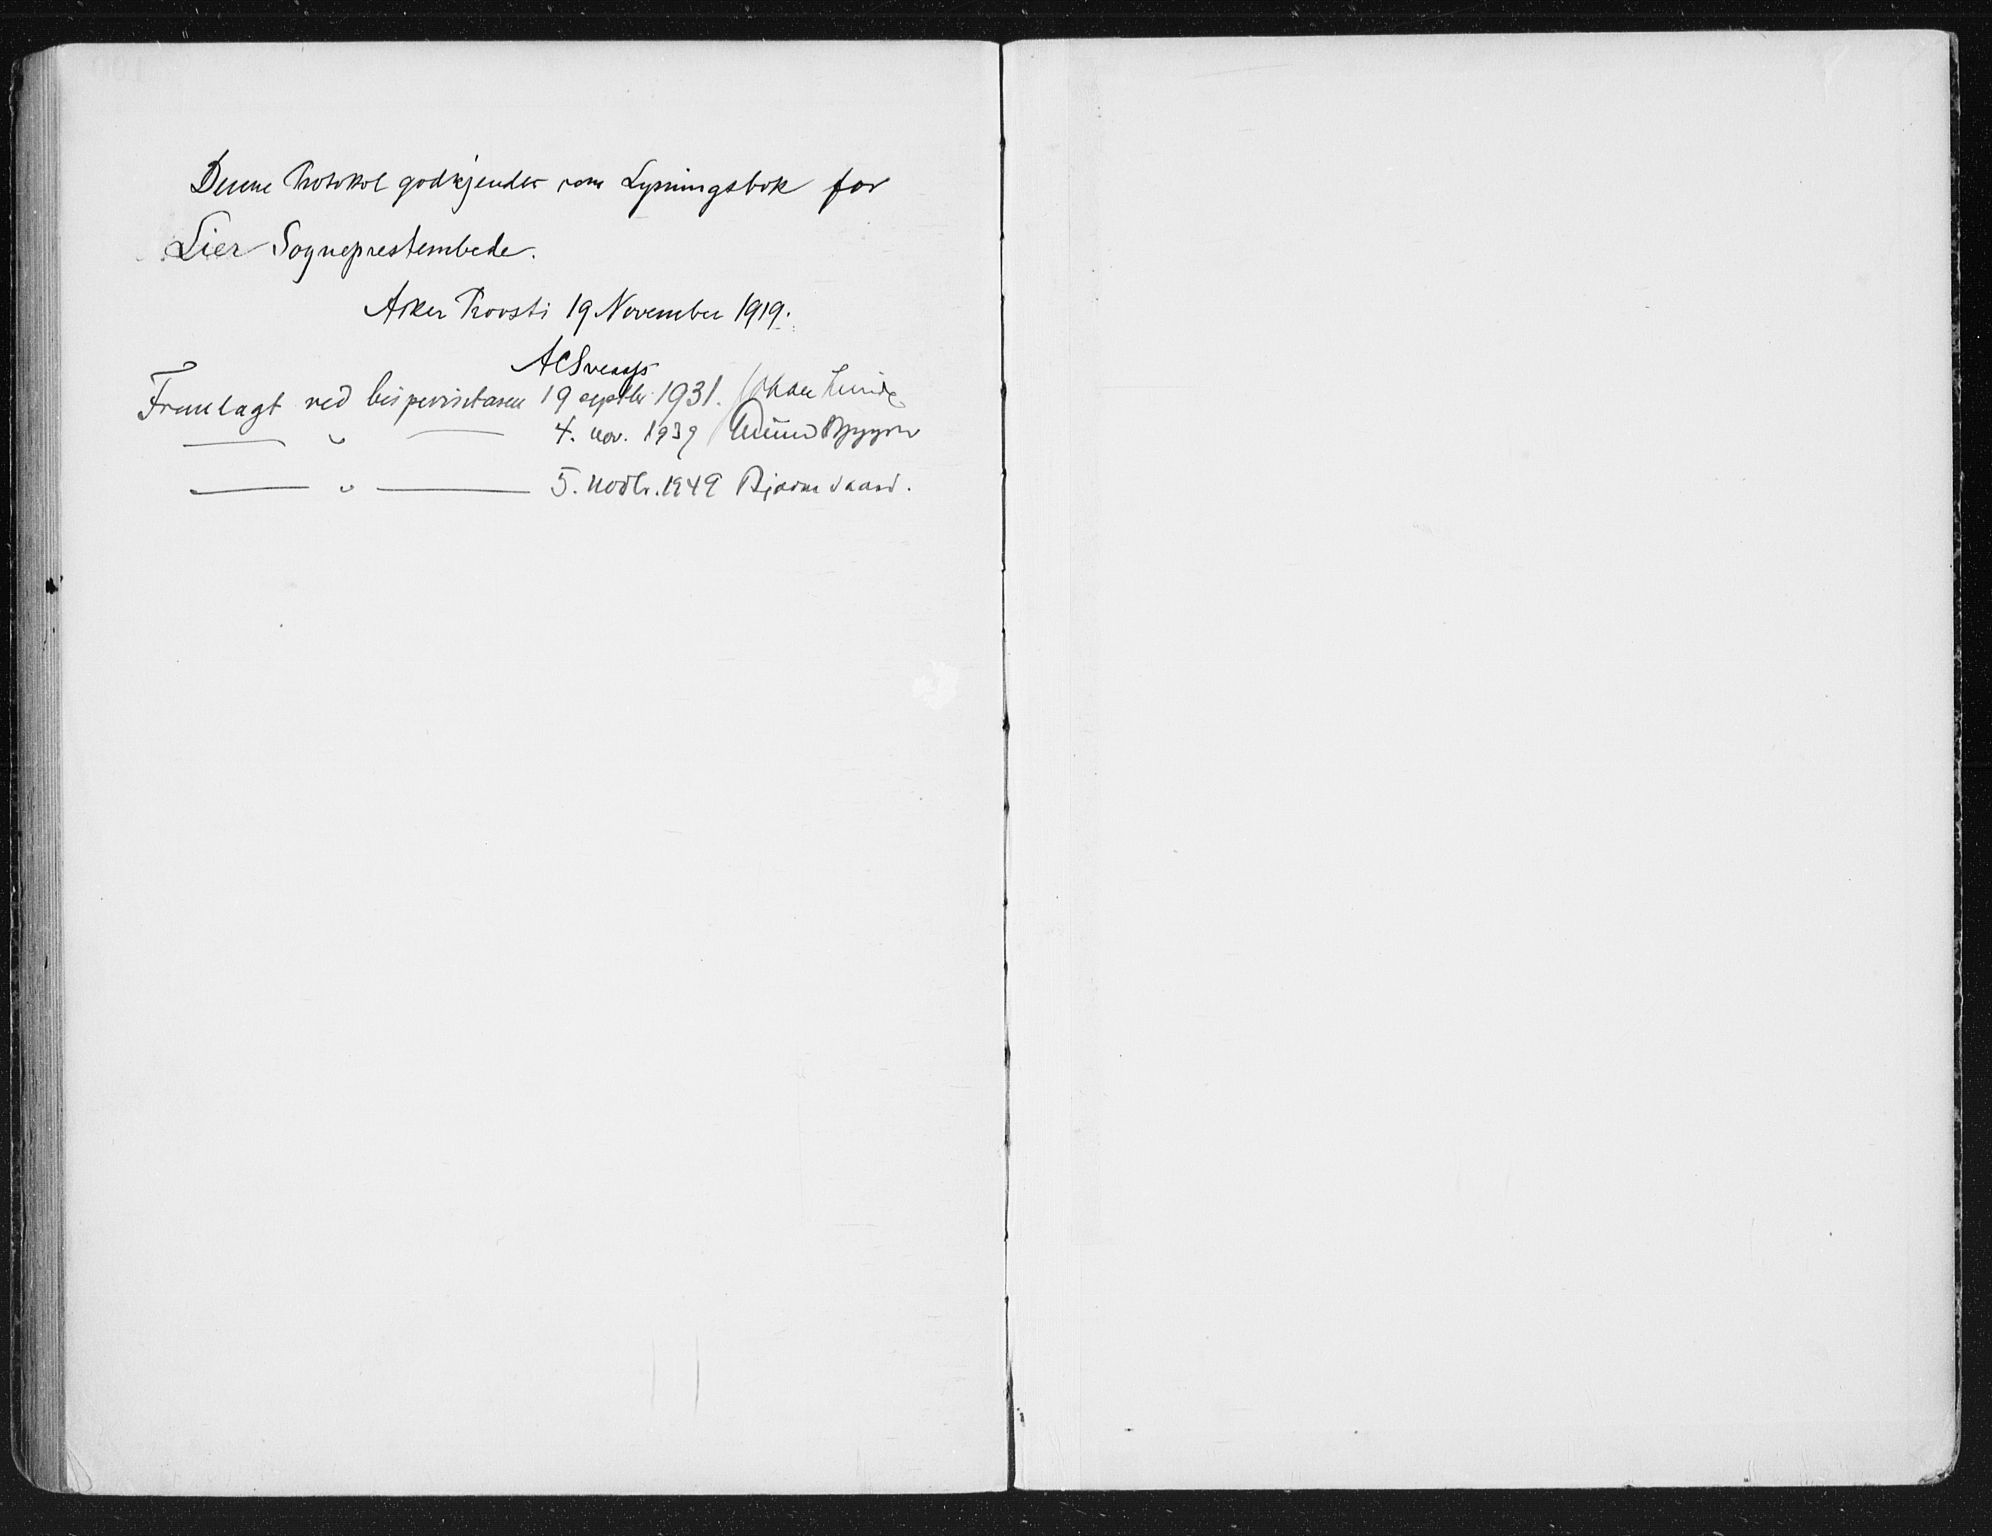 Denne Protokol godkjendes som Lysningsbok for
Lier Sogneprestembede.
Asker Provsti 19 November 1919.
Fremlagt ved bispevisitasen 19 septbr 1931. Johan Lunde
— " — 4. nov. 1939
— " — 5. novbr. 1949 Bjarne Skard.